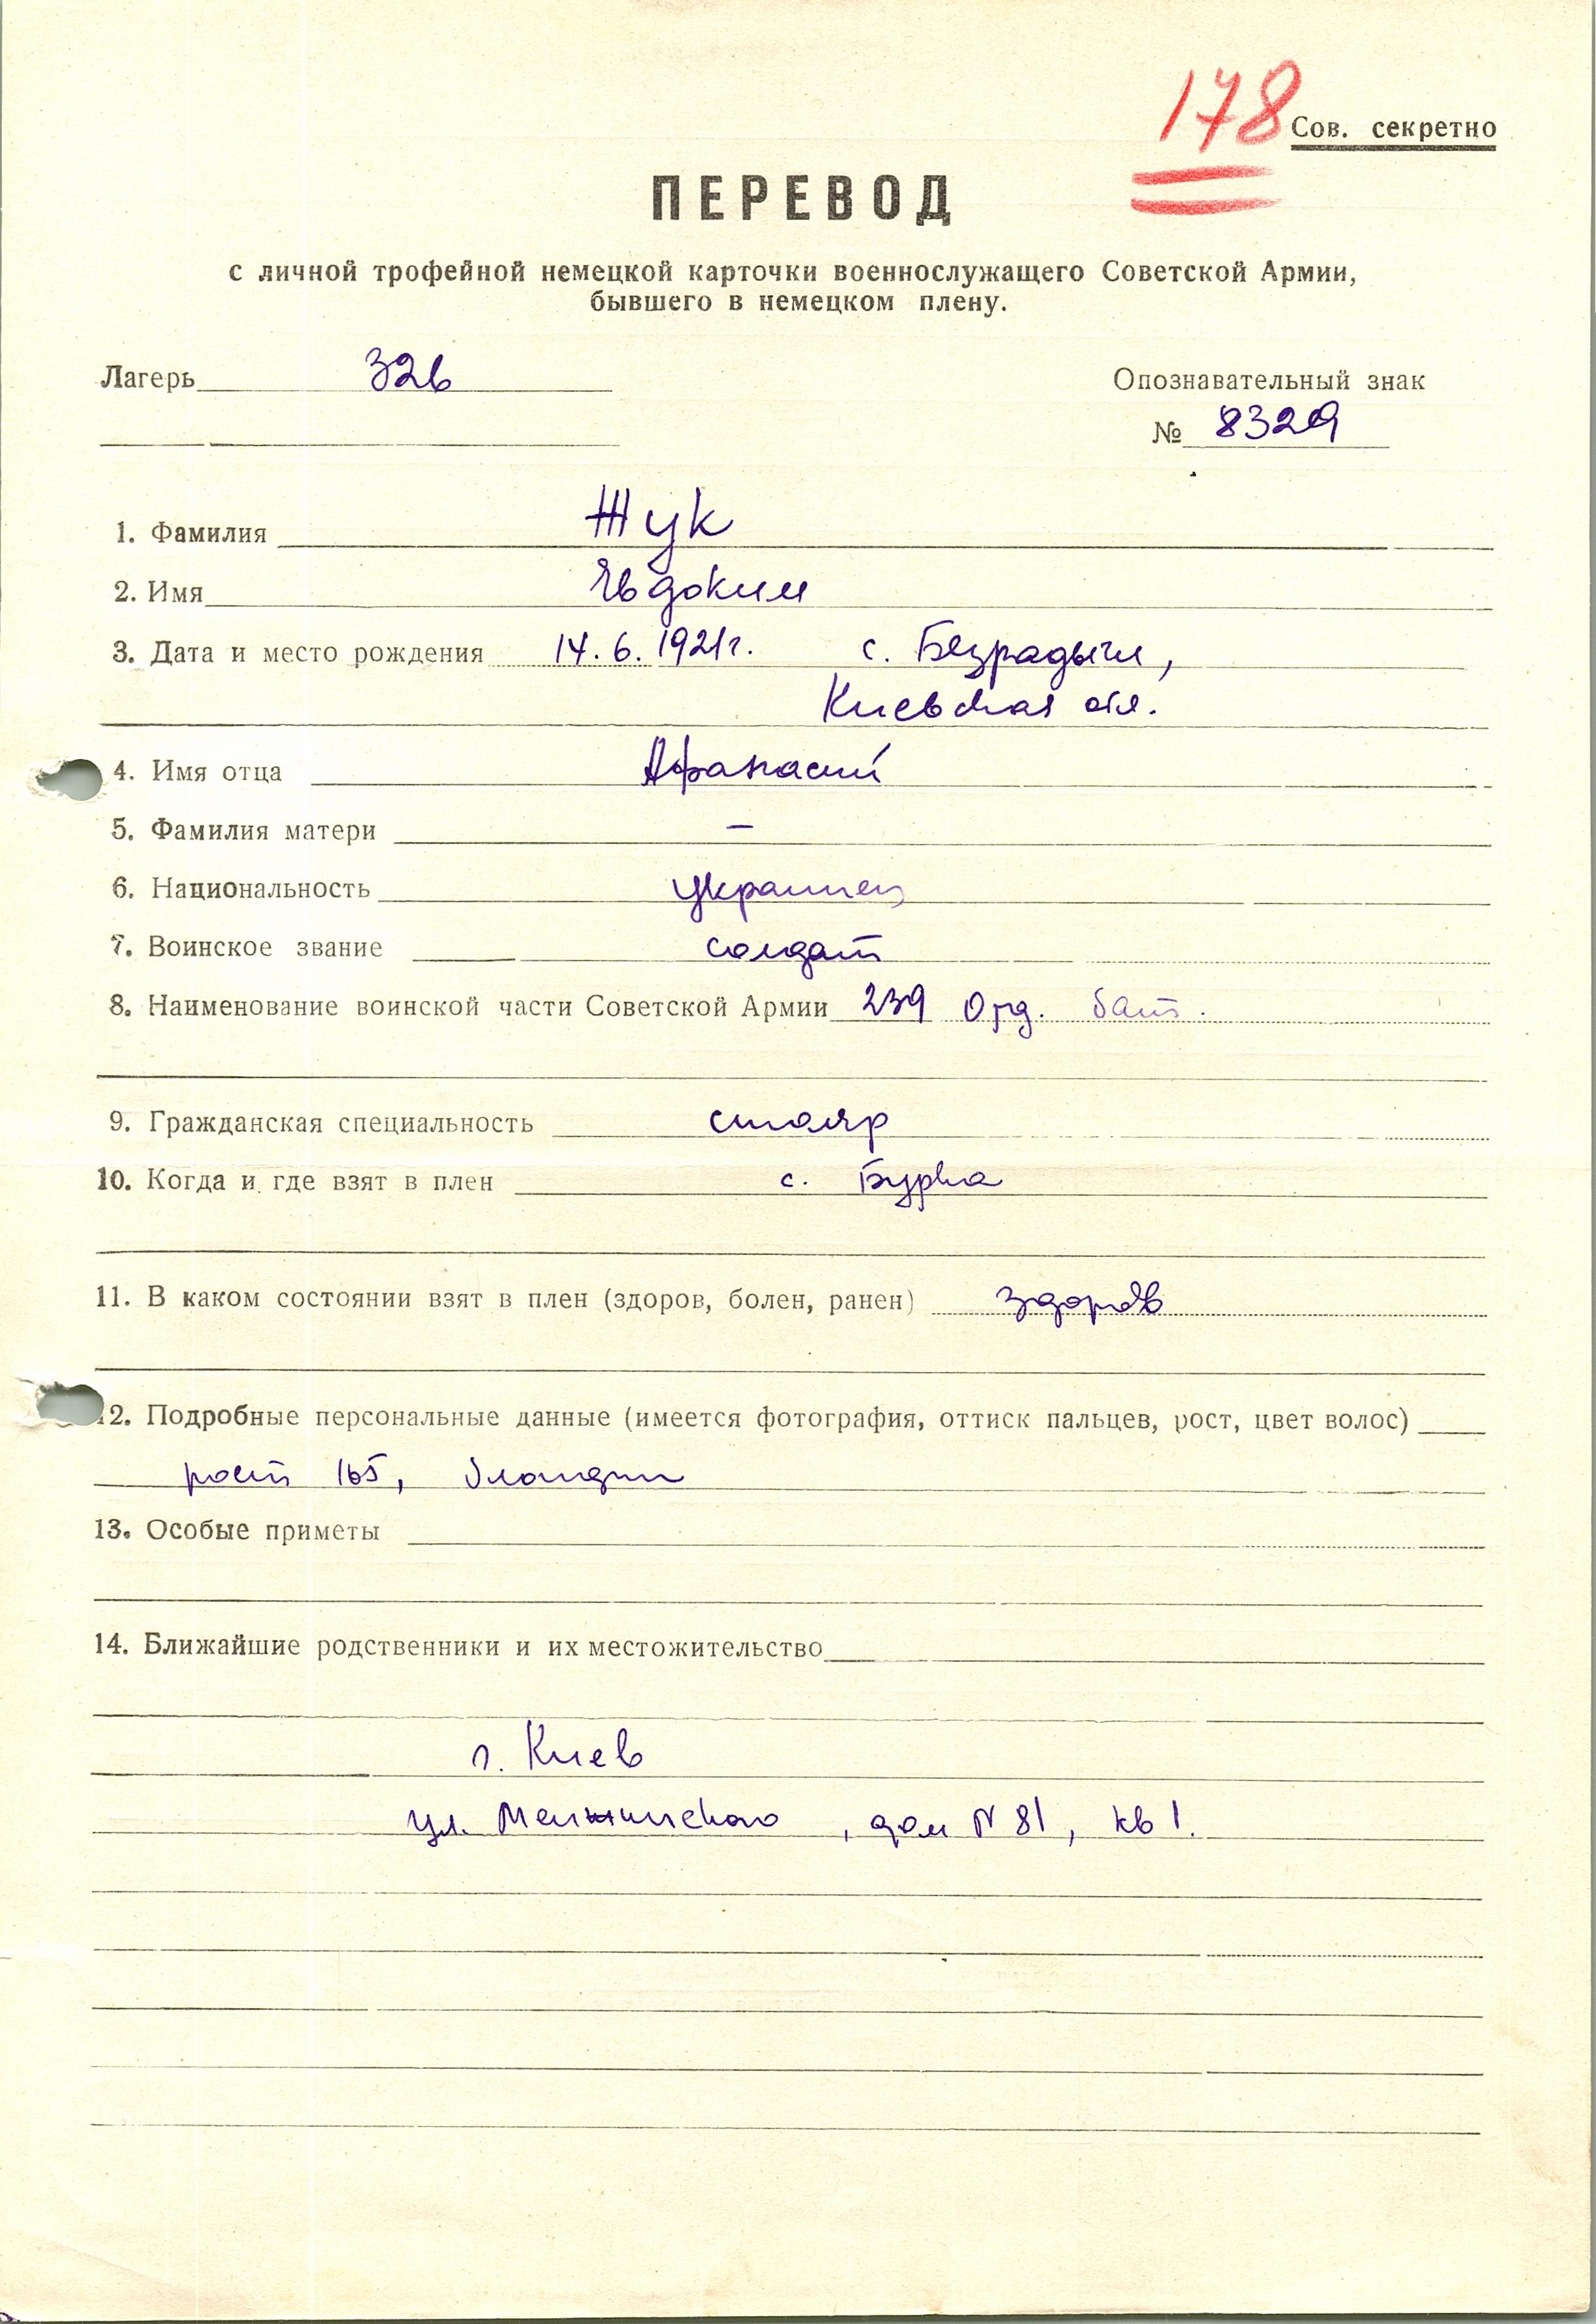 178 Сов. секретно
ПЕРЕВОД
с личной трофейной немецкой карточки военнослужащего Советской Армии,
бывшего в немецком плену.
Лагерь 326
Опознавательный знак
№ 8329
1. Фамилия Жук
2. Имя Евдоким
3. Дата и место рождения 14.6.1921г. с. Безрадычи,
Киевская обл.
4. Имя отца Афанасий
5. Фамилия матери –
6. Национальность украинец
7. Воинское звание солдат
8. Наименование воинской части Советской Армии 239 Отд. бат.
9. Гражданская специальность столяр
10. Когда и где взят в плен с. Бурка
11. В каком состоянии взят в плен (здоров, болен, ранен) здоров
12. Подробные персональные данные (имеется фотография, оттиск пальцев, рост, цвет волос)
рост 165, блондин
13. Особые приметы
14. Ближайшие родственники и их местожительство
г. Киев
ул. Менжинского, дом N 81, кв 1.